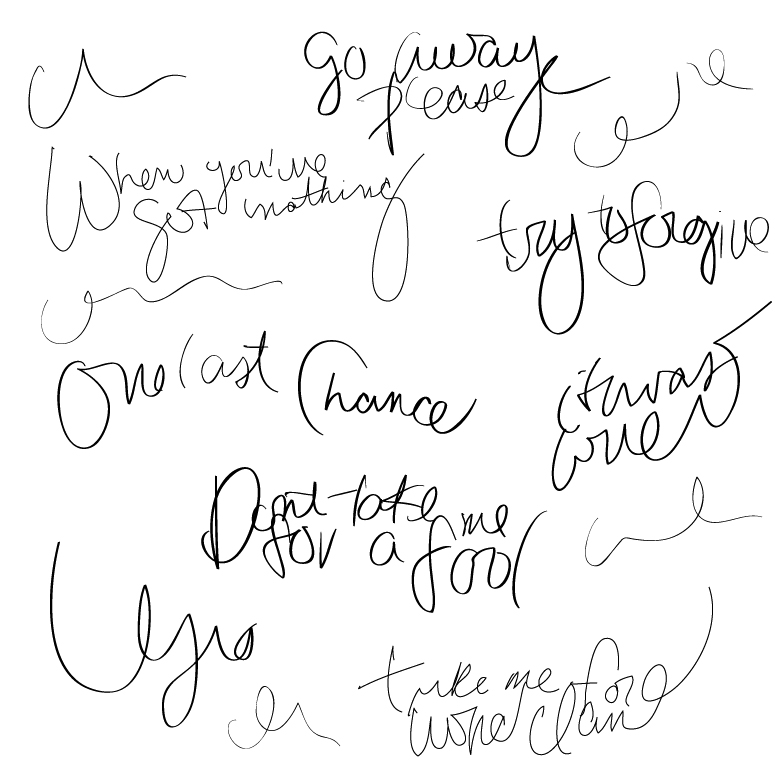 go away
please
When you've
got nothing
try to forgive
One last Chance
it was
love
Dont take me
for a fool
take me for